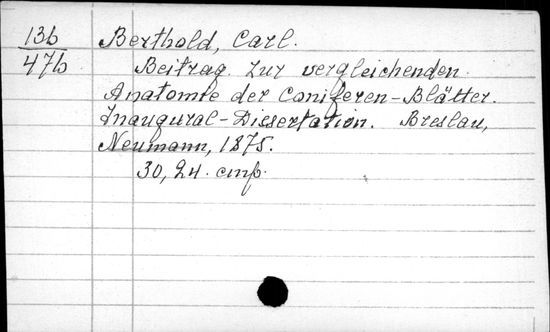 13b Berthold, Carl.
47b Beitrag zur vergleichenden
Anatomie der Coniferen-Blätter.
Inaugural-Dissertation. Breslau,
Neumann, 1875.
30, 24. стр.